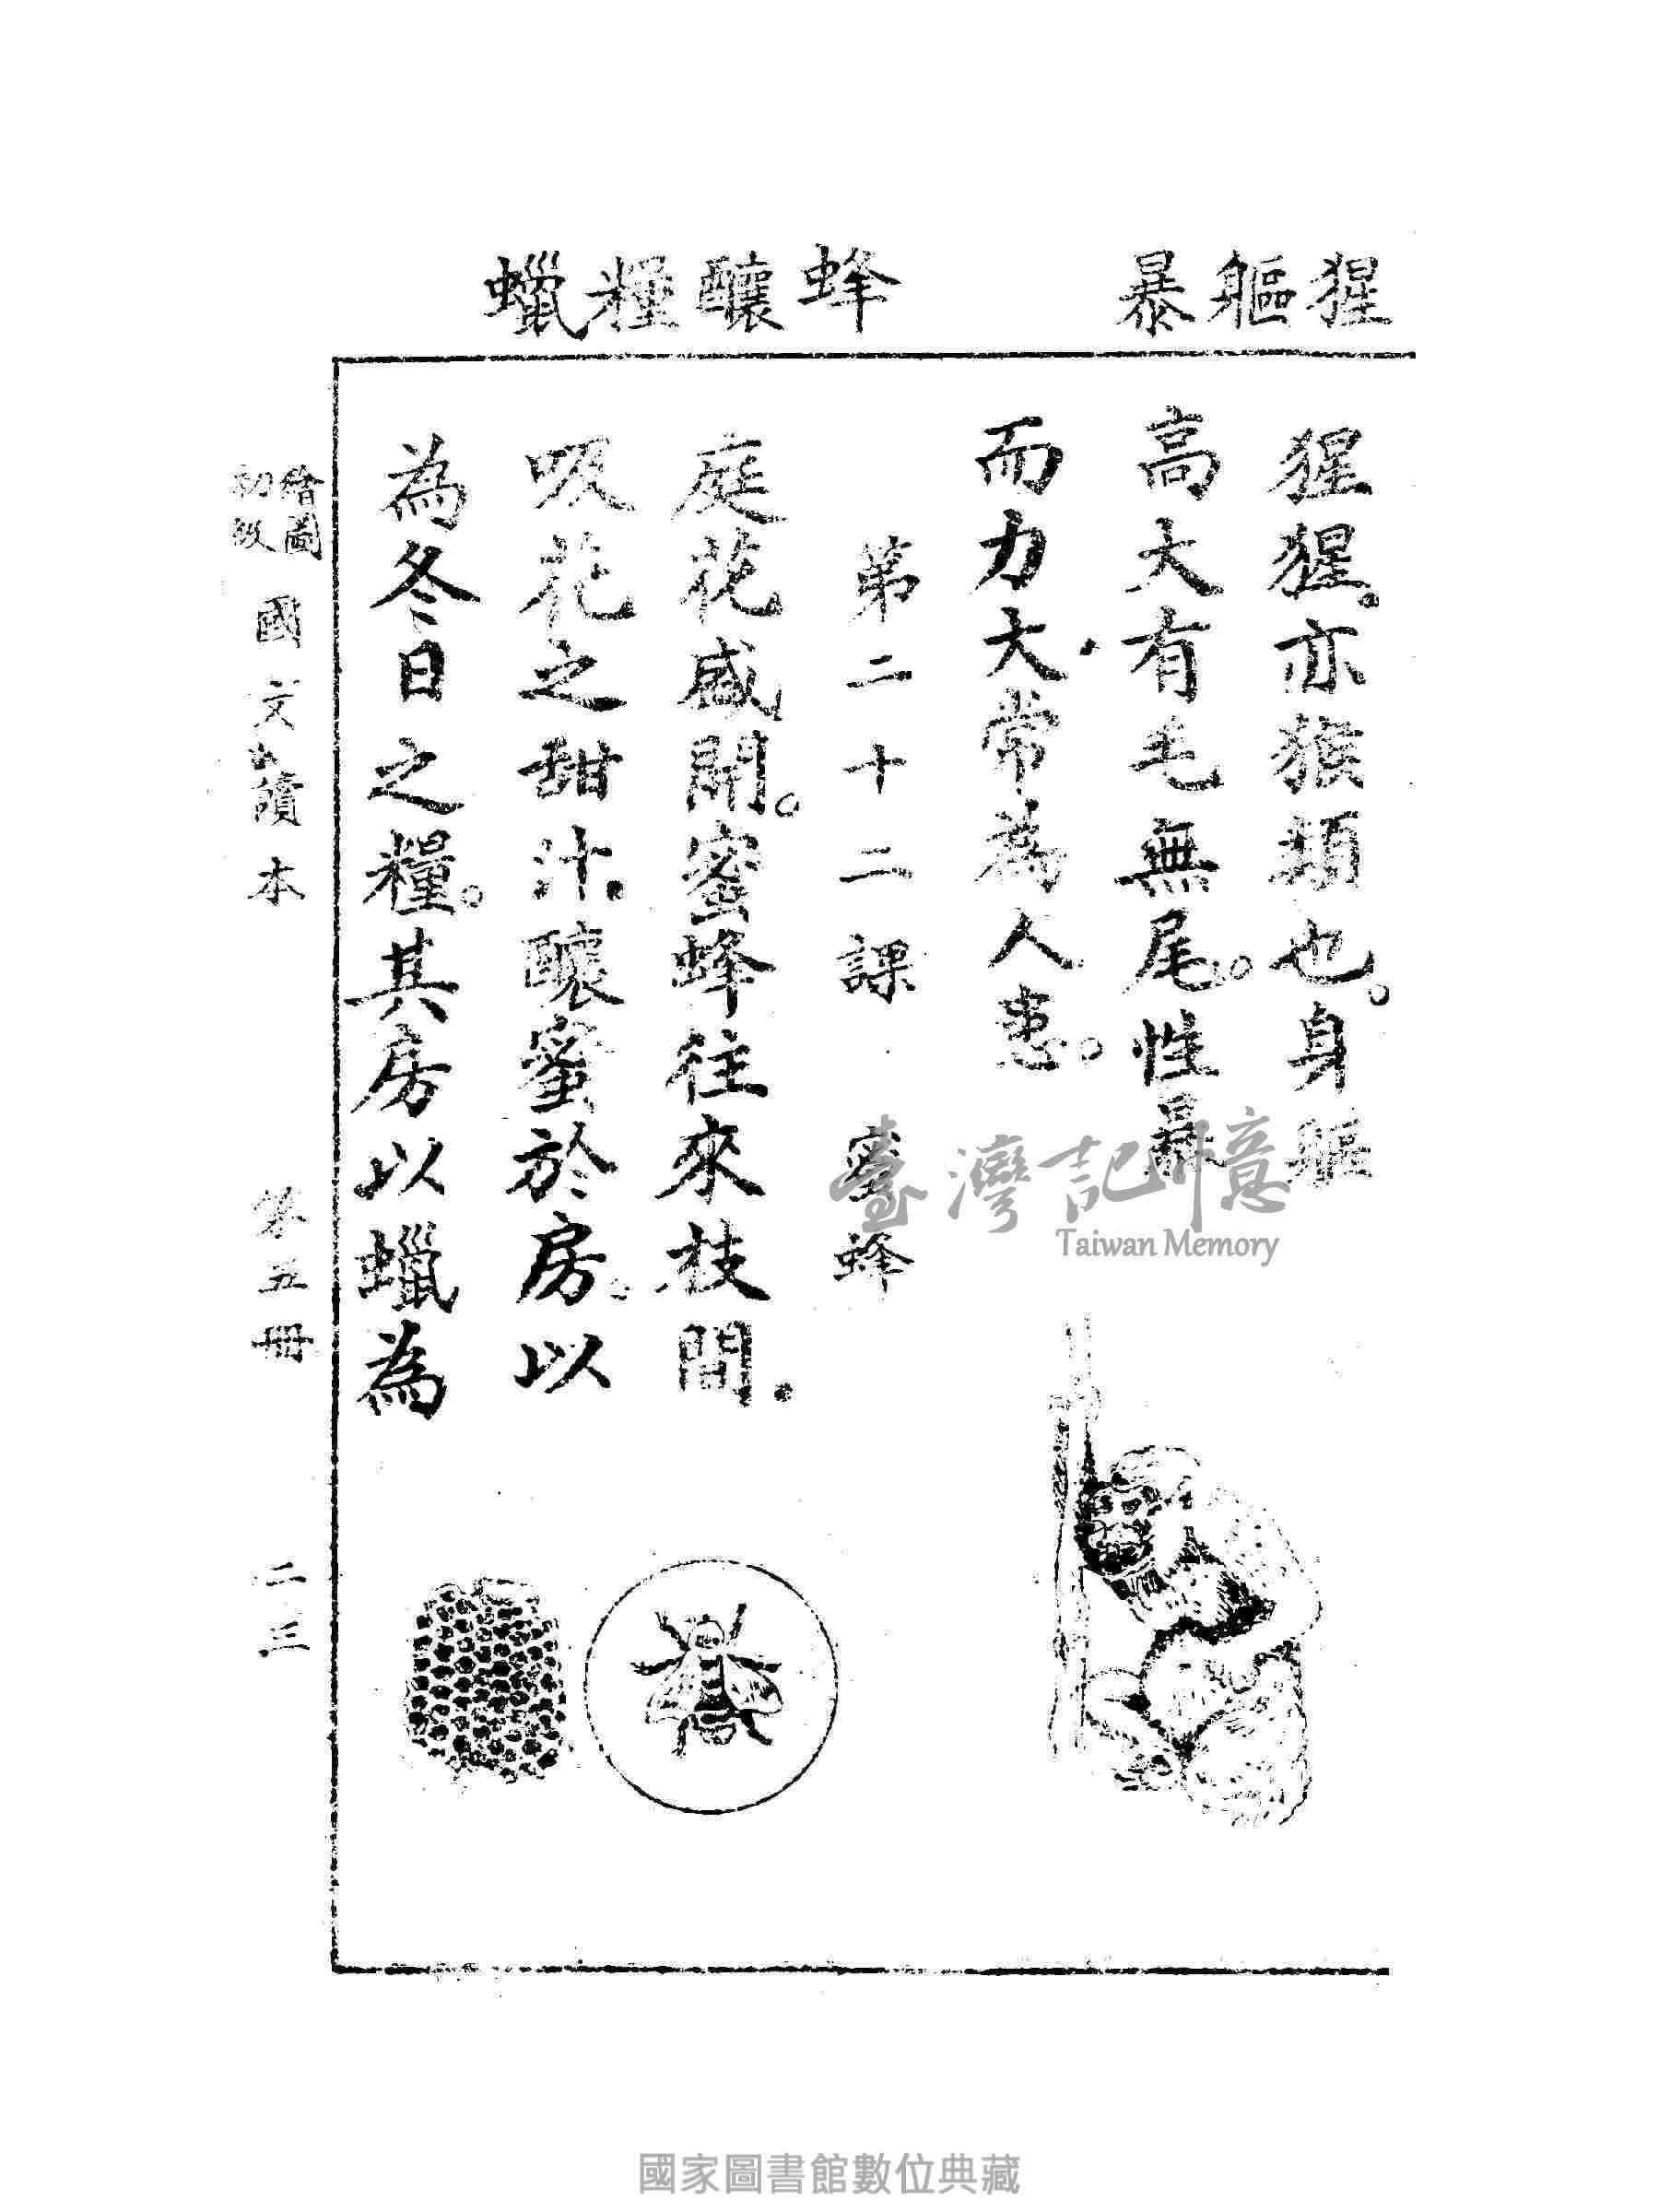 猩軀暴
蜂釀糧蠟
猩猩、亦猴類也。身軀
高大有毛無尾。性暴
而力大、常為人患。
第二十二課 蜜蜂
庭花盛開。蜜蜂往來枝間、
吸花之甜汁、釀蜜於房。以
為冬日之糧。其房以蠟為
繪圖
初級
國文讀本 第五冊 二三
臺灣記憶
Taiwan Memory
國家圖書館數位典藏